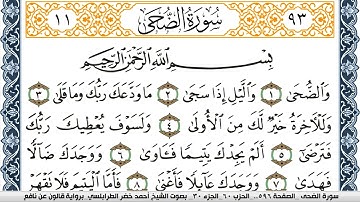 ٩٣ سُورَةُ الضُّحَىٰ ١١
بِسْمِ اللَّهِ الرَّحْمَٰنِ الرَّحِيمِ
وَالضُّحَىٰ ١ وَاللَّيْلِ إِذَا سَجَىٰ ٢ مَا وَدَّعَكَ رَبُّكَ وَمَا قَلَىٰ ٣
وَلَلْآخِرَةُ خَيْرٌ لَّكَ مِنَ الْأُولَىٰ ٤ وَلَسَوْفَ يُعْطِيكَ رَبُّكَ
فَتَرْضَىٰ ٥ أَلَمْ يَجِدْكَ يَتِيمًا فَـَٔاوَىٰ ٦ وَوَجَدَكَ ضَآلًّا
فَهَدَىٰ ٧ وَوَجَدَكَ عَآئِلًا فَأَغْنَىٰ ٨ فَأَمَّا الْيَتِيمَ فَلَا تَقْهَرْ
سورة الضحى . الصفحة ٥٩٦ . الحزب ٦٠ . الجزء ٣٠ . بصوت الشيخ أحمد خضر الطرابلسي . برواية قالون عن نافع